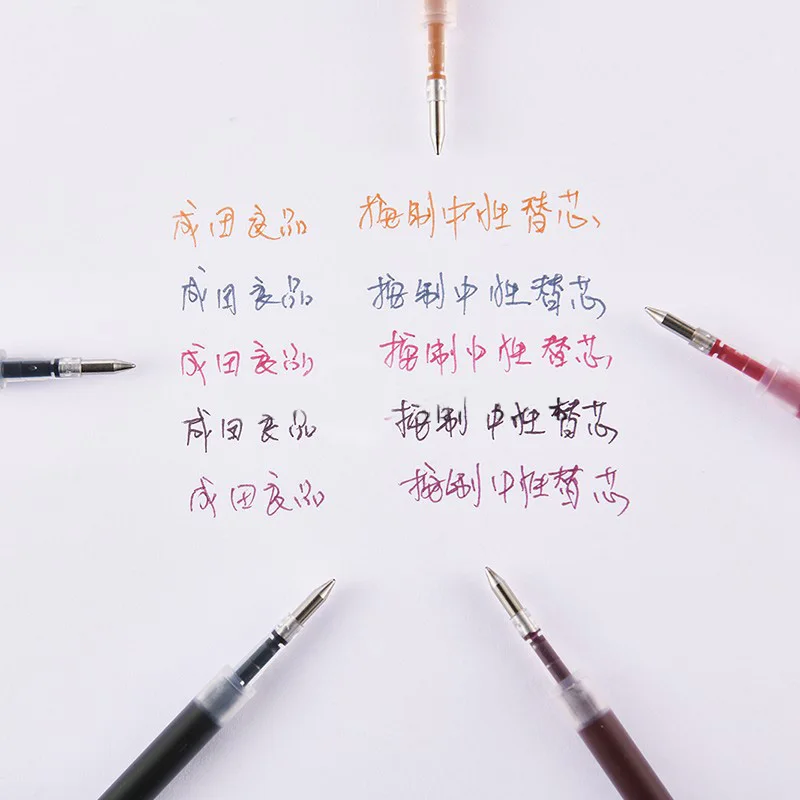 成田良品 按制中性替芯
成田良品 按制中性替芯
成田良品 按制中性替芯
成田良品 按制中性替芯
成田良品 按制中性替芯